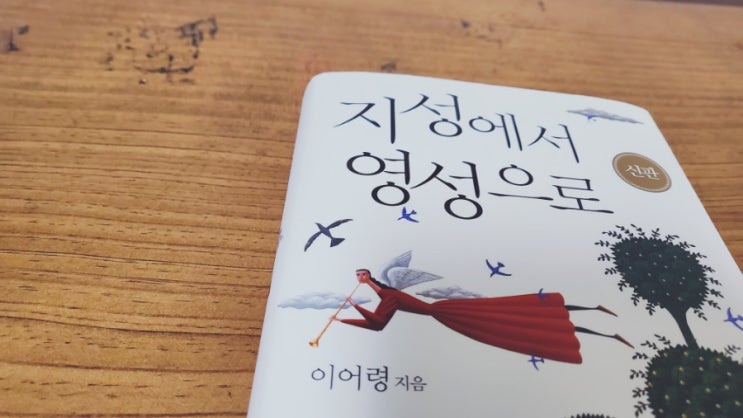 지성에서
영성으로
신판
이어령 지음